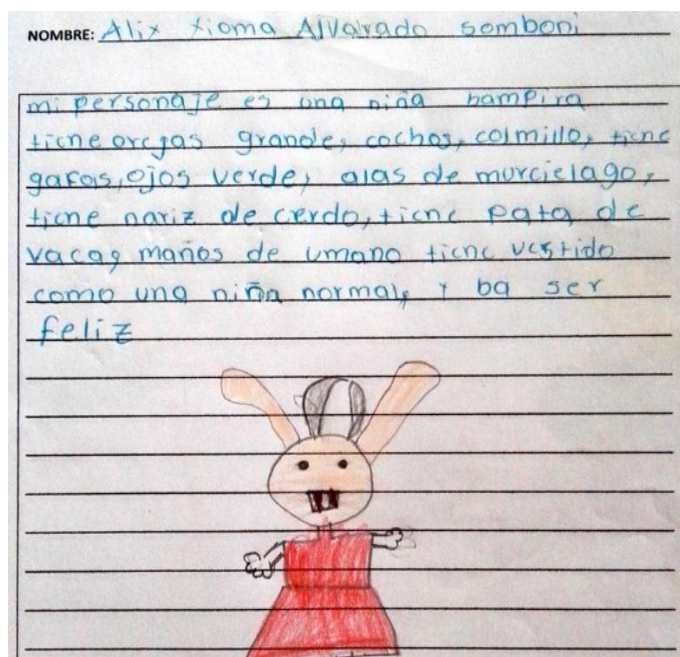 NOMBRE: Alix xioma Alvarado somboni
mi personaje es una niña bampira
tiene orejas grande, cochos, colmillo, tiene
gafas, ojos verde, alas de murcielago,
tiene nariz de cerdo, tiene pata de
vacas maños de umano tiene vestido
como una niña normal, y ba ser
feliz